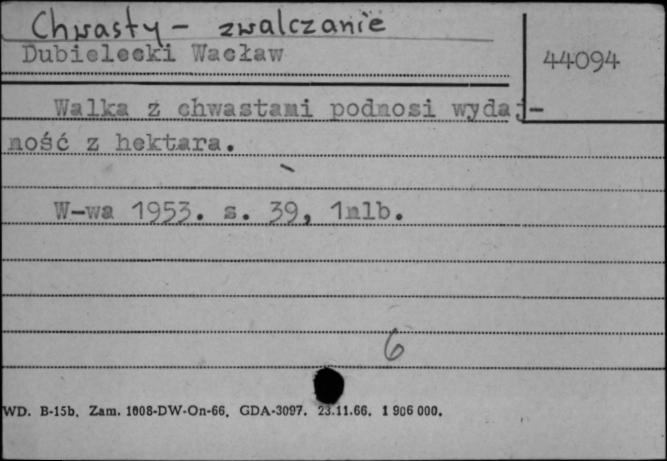 Chwasty - zwalczanie
Dubielecki Wacław
44094
Walka z chwastami podnosi wydaj-
ność z hektara.
W-wa 1953. s. 39, 1nlb.
6
WD. B-15b. Zam. 1008-DW-On-66. GDA-3097. 23.11.66. 1 906 000.